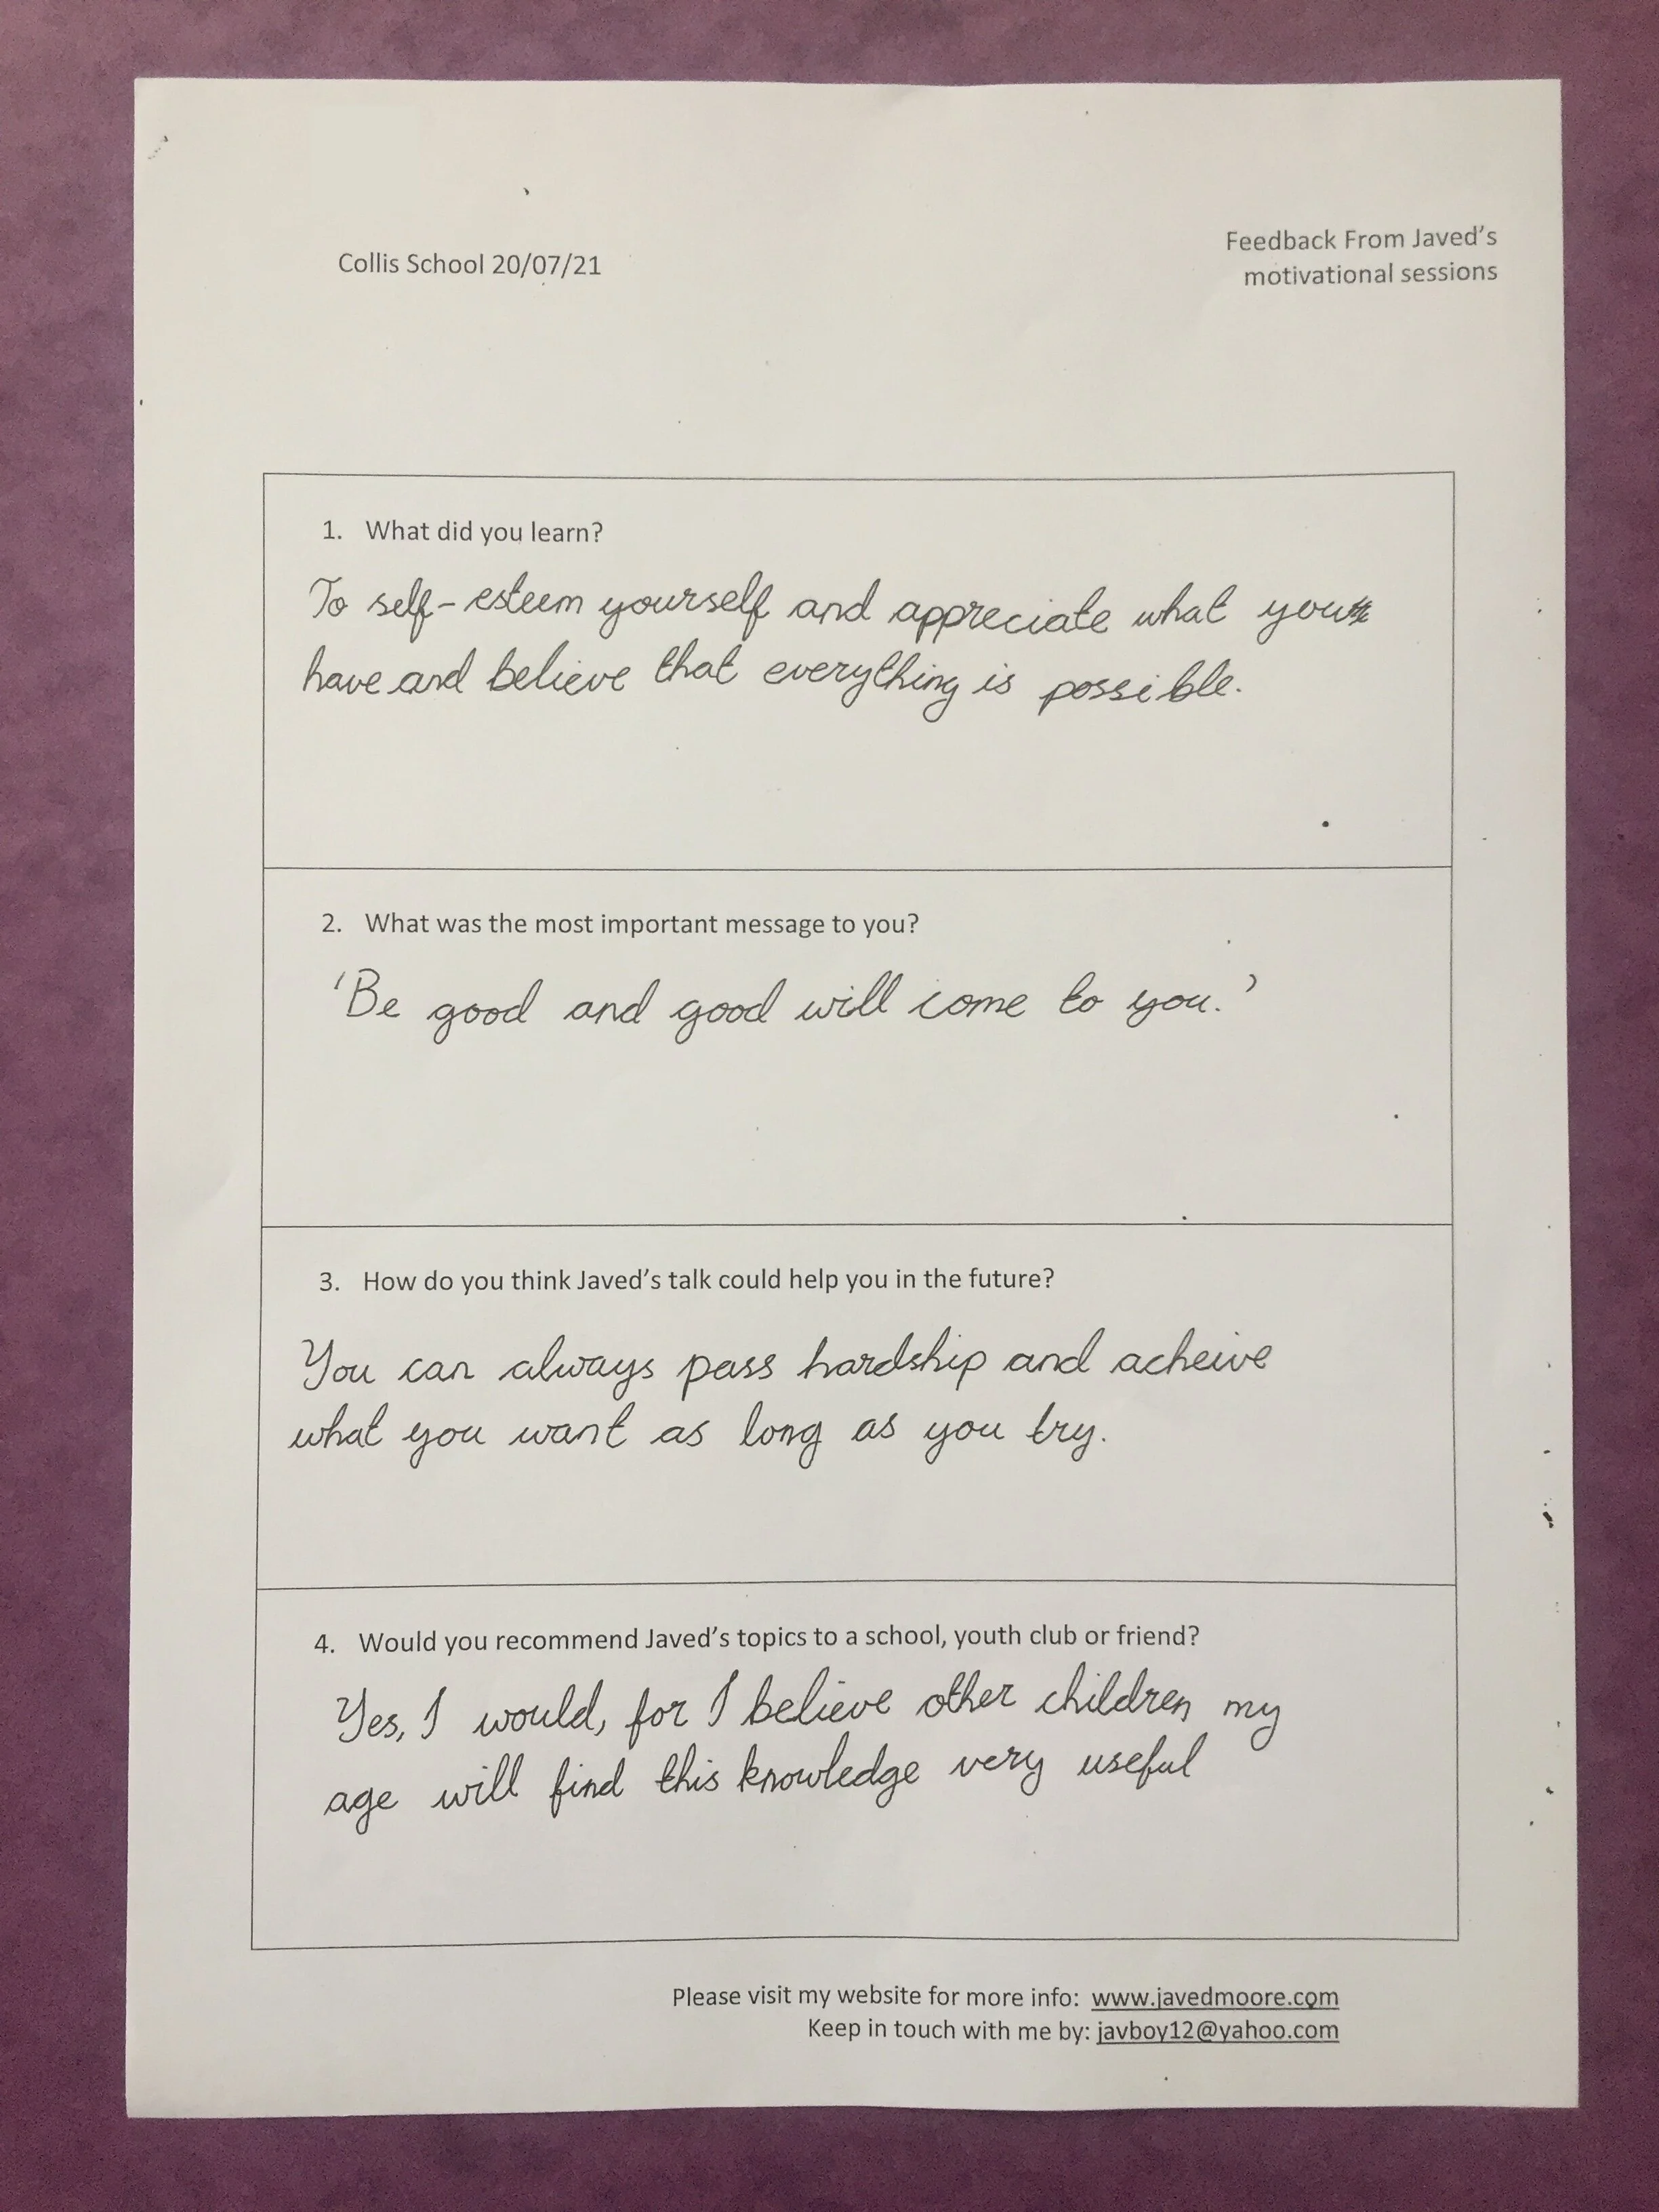 Collis School 20/07/21
Feedback From Javed's
motivational sessions
1. What did you learn?
To self-esteem yourself and appreciate what you
have and believe that everything is possible.
2. What was the most important message to you?
'Be good and good will come to you.'
3. How do you think Javed's talk could help you in the future?
You can always pass hardship and acheive
what you want as long as you try.
4. Would you recommend Javed's topics to a school, youth club or friend?
Yes, I would, for I believe other children my
age will find this knowledge very useful
Please visit my website for more info: www.javedmoore.com
Keep in touch with me by: javboy12@yahoo.com